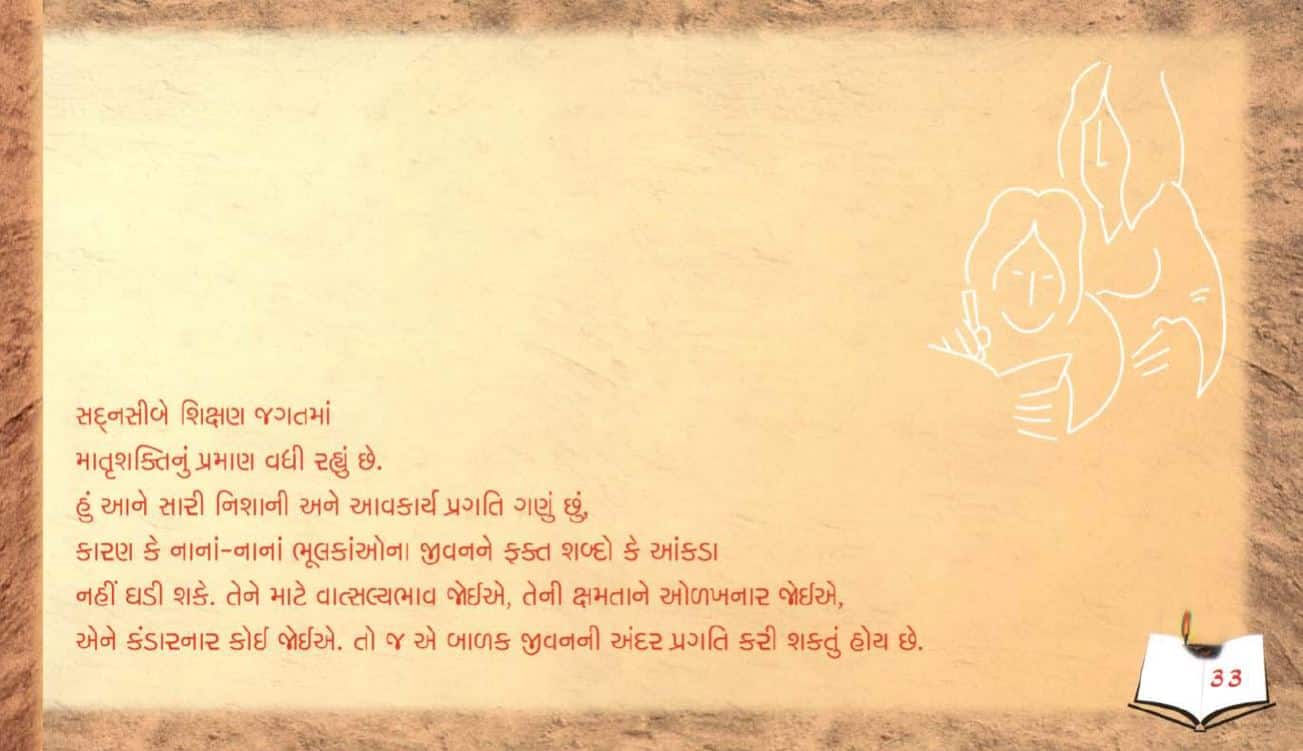 સદ્‌નસીબે શિક્ષણ જગતમાં
માતૃશક્તિનું પ્રમાણ વધી રહ્યું છે.
હું આને સારી નિશાની અને આવકાર્ય પ્રગતિ ગણું છું,
કારણ કે નાનાં-નાનાં ભૂલકાંઓના જીવનને ફક્ત શબ્દો કે આંકડા
નહીં ઘડી શકે. તેને માટે વાત્સલ્યભાવ જોઈએ, તેની ક્ષમતાને ઓળખનાર જોઈએ,
એને કંડારનાર કોઈ જોઈએ. તો જ એ બાળક જીવનની અંદર પ્રગતિ કરી શકતું હોય છે.
33